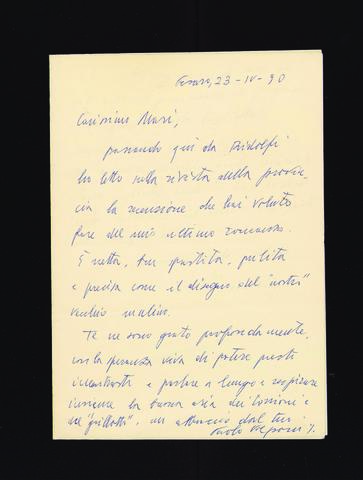 Pesaro, 23 - IV - 90
Carissimo Mari,
passando qui da Ridolfi
ho letto sulla rivista della provin-
cia la recensione che hai voluto
fare del mio ultimo romanzo.
È netta, pulita
e precisa come il disegno del "nostri"
vecchio mulino.
Te ne sono grato profondamente,
con la speranza viva di potere presto
incontrarti e parlare a lungo e respirare
insieme la buona aria dei
del "grillotti", un abbraccio dal tuo
Paolo Volponi